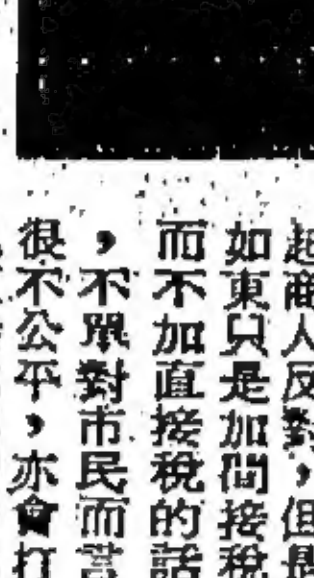 起商人反對，但是
如東只是加間接稅
而不加直接稅的話
，不單對市民而言
很不公平，亦會打